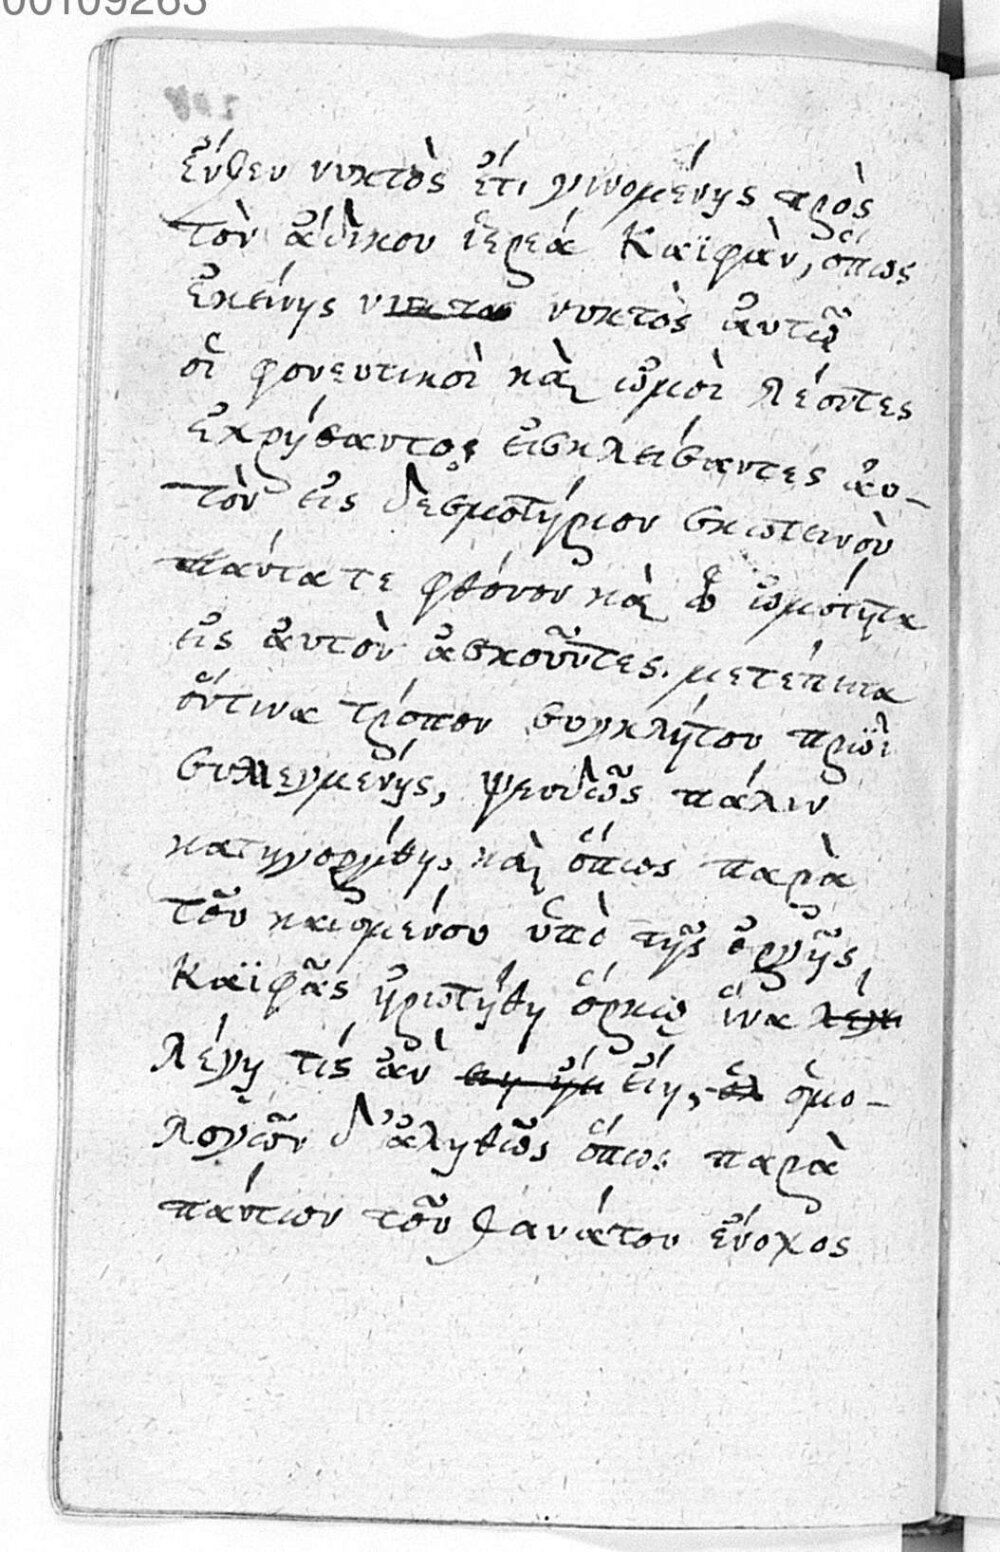 00109263
ἔνθεν νυκτὸς ἔτι γινομένης πρὸς
τὸν ἄδικον ἱερεά Καϊφὰν, ὅπως
ἐκείνης νυκτὸς ἀυτῷ
οἱ φονευτικοὶ καὶ ὠμοὶ λέοντες
ἐχρήσαντο, εἰσκλείσαντες ἀυ-
τὸν εἰς δεσμοτήριον σκωτεινὸν
πάντα τε φθόνον καὶ ὠμότητα
εἰς ἀυτὸν ἀσκοῦντες. μετέπιτα
ὅντινα τρόπον συγκλήτου πρωῒ
συλλεγμένης, ψευδῶς πάλιν
κατηγορήθη, καὶ ὅπως παρὰ
τοῦ καιομένου ὑπὸ τῆς ὀργῆς,
Καϊφᾶς ἠρωτήθη ὅρκῳ ἵνα
λέγῃ τίς ἂν εἴη, ὁμο-
λογῶν δ'ἀληθῶς ὅπως παρὰ
πάντων τοῦ θανάτου ἔνοχος